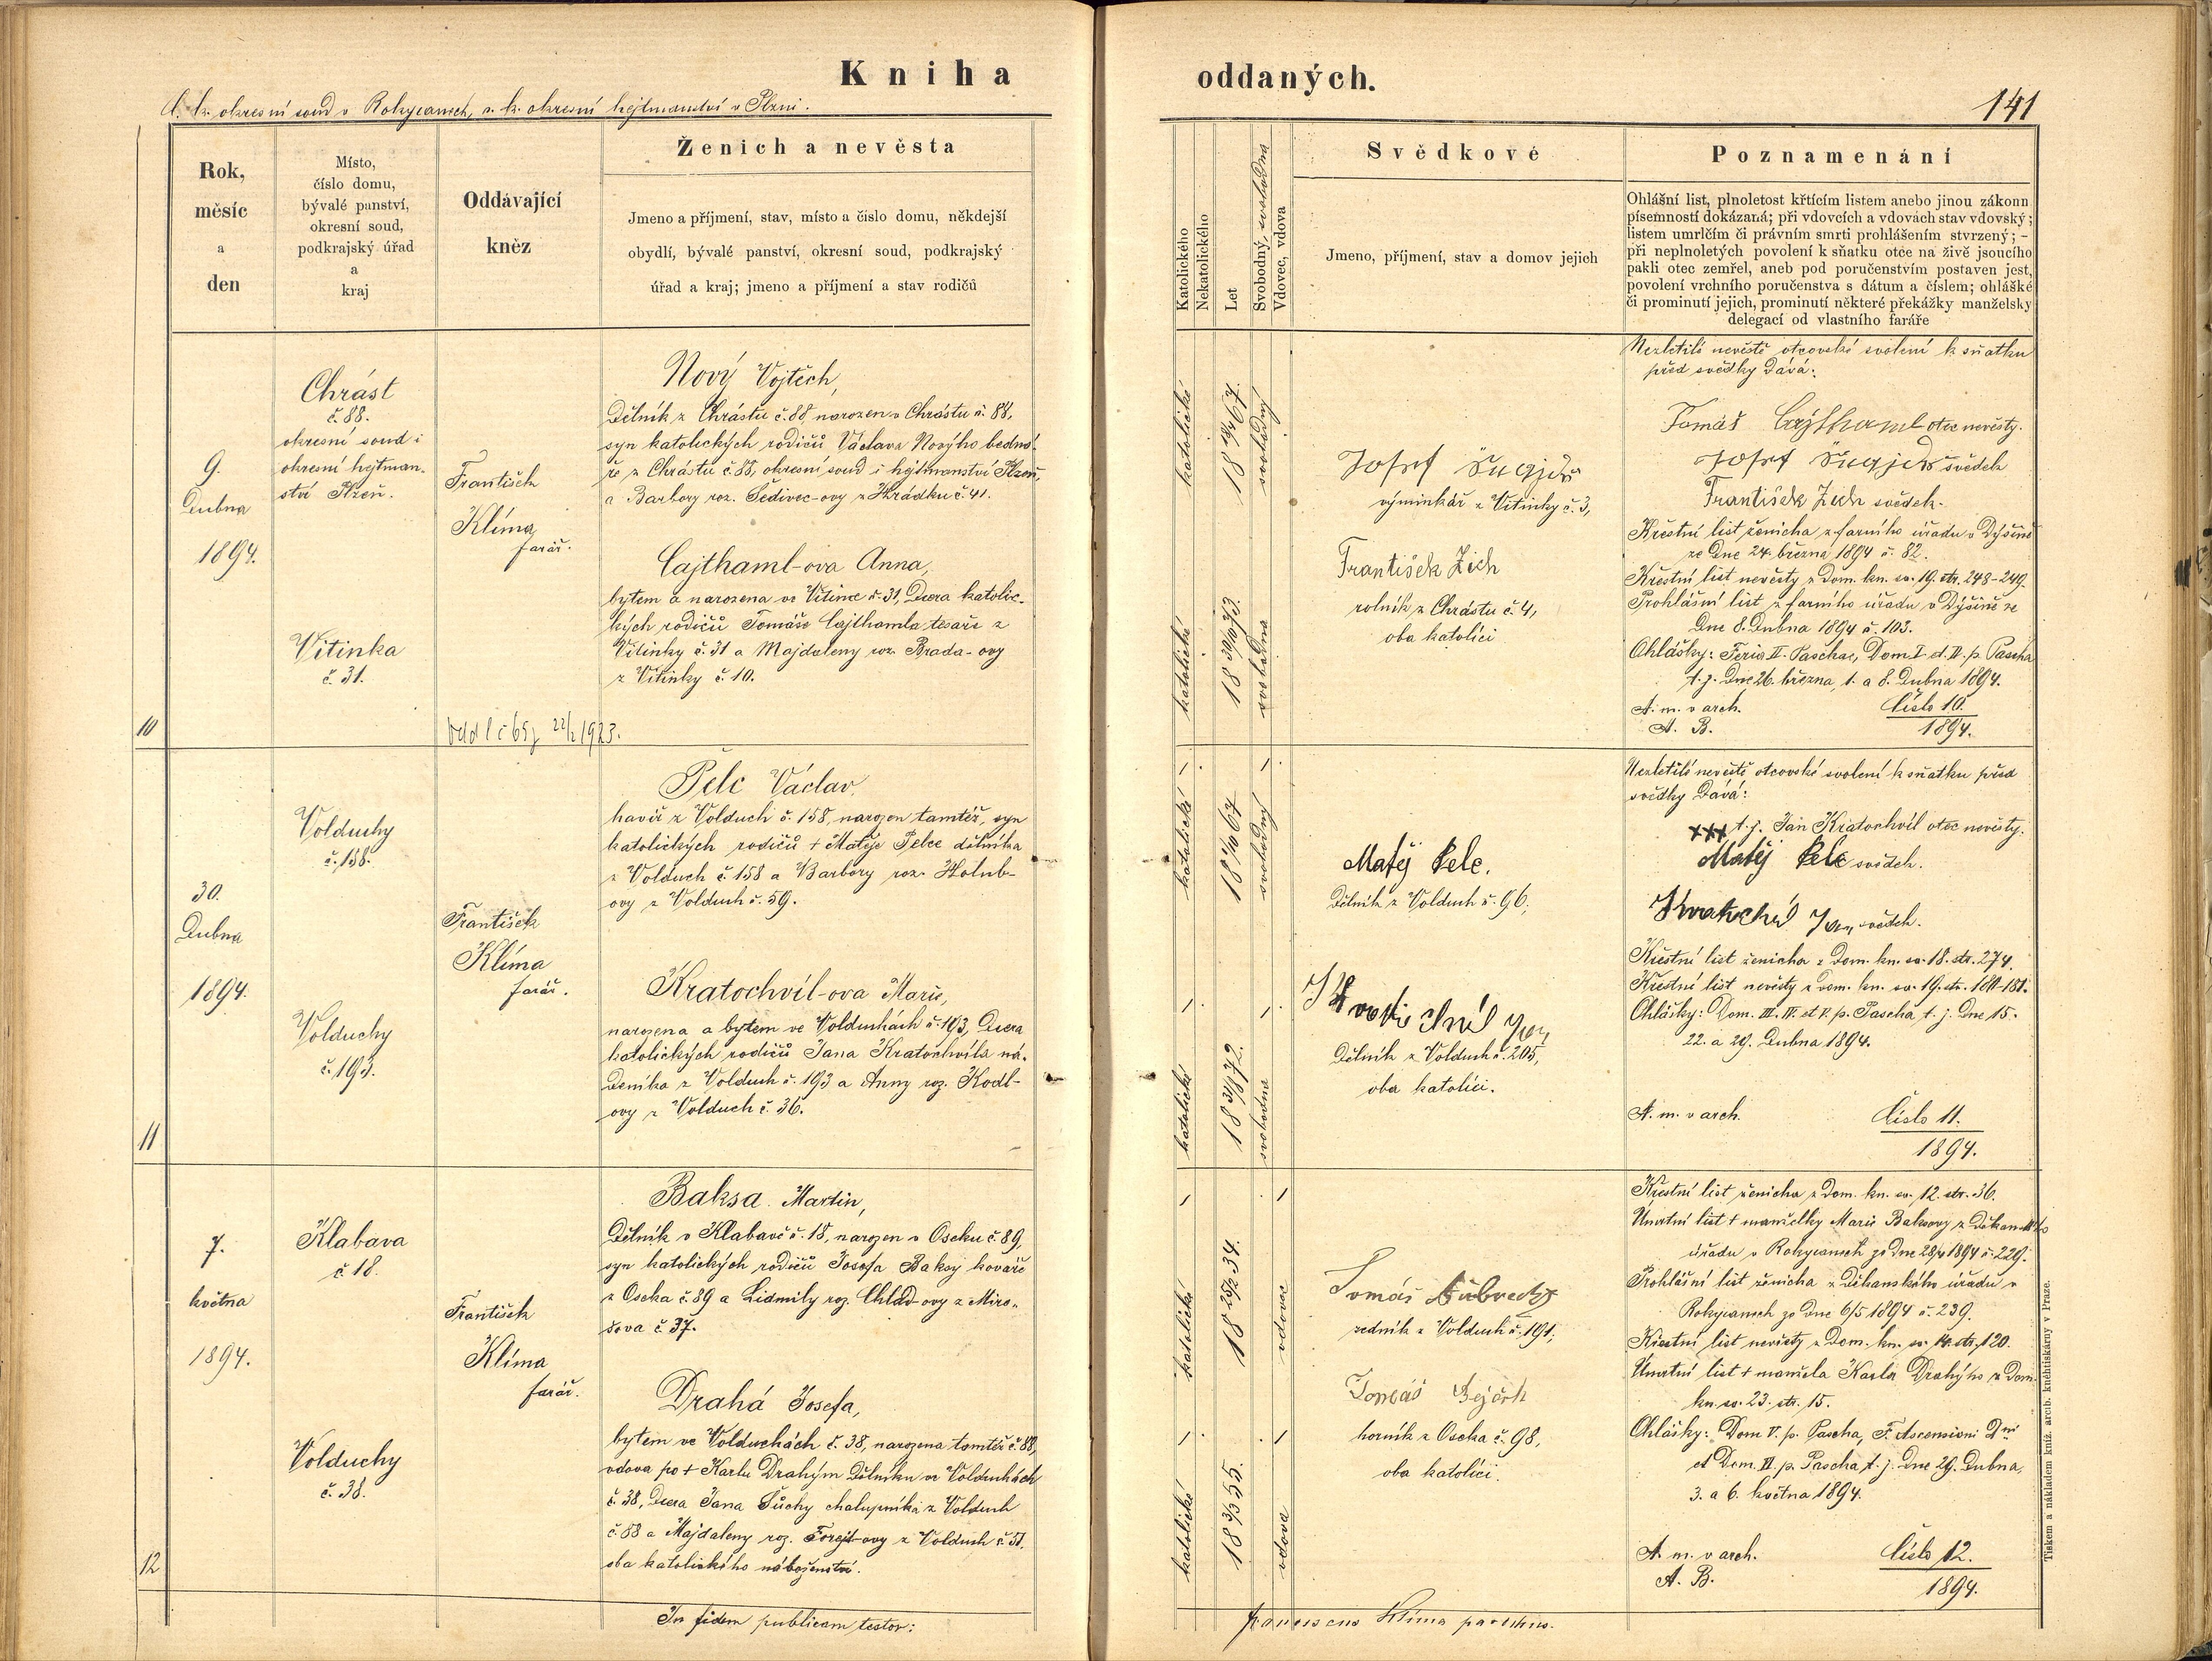 Kniha
oddaných.
C. k. okresní soud v Rokycanech, c. k. okresní hejtmanství v Plzni.
141
Rok,
měsíc
a
den
Místo,
číslo domu,
bývalé panství,
okresní soud,
podkrajský úřad
a
kraj
Oddávající
kněz
Ženich a nevěsta
Jmeno a příjmení, stav, místo a číslo domu, někdejší
obydlí, bývalé panství, okresní soud, podkrajský
úřad a kraj; jmeno a příjmení a stav rodičů
Katolického
Nekatolického
Let
Svobodný, svobodná
Vdovec, vdova
Svědkové
Jmeno, příjmení, stav a domov jejich
Poznamenání
Ohlášní list, plnoletost křtícím listem anebo jinou zákonn.
písemností dokázaná; při vdovcích a vdovách stav vdovský;
listem umrlčím či právním smrti prohlášením stvrzený; –
při neplnoletých povolení k sňatku otce na živě jsoucího
pakli otec zemřel, aneb pod poručenstvím postaven jest,
povolení vrchního poručenstva s dátum a číslem; ohlášké
či prominutí jejich, prominutí některé překážky manželsky
delegací od vlastního faráře
10
9.
Dubna
1894.
Chrást
č. 88.
okresní soud i
okresní hejtman-
ství Plzeň.
Vitinka
č. 31.
František
Klíma
farář.
Nový Vojtěch,
Dělník z Chrástu č. 88, narozen v Chrástu č. 88,
syn katolických rodičů Václava Nového bedná-
ře z Chrástu č. 88, okresní soud i hejtmanství Plzeň,
a Barbory roz. Šedivec-ovy z Hrádku č. 41.
Cajthaml-ova Anna,
bytem a narozena ve Vitince č. 31, Dcera katolic-
kých rodičů Tomáše Cajthamla tesaře z
Vitinky č. 31 a Majdaleny roz. Brada-ovy
z Vitinky č. 10.
22/2 1923.
katolické
18 67.
svobodný
katolické
18 30/10 73.
svobodná
Josef
výminkář z Vitinky č. 3,
František Zich
rolník z Chrástu č. 4,
oba katolíci
Nezletilé nevěstě otcovské svolení k sňatku
před svědky Dává:
Tomáš Cajthaml otec nevěsty.
Josef svědek
František Zich svědek.
Křestní list ženicha z farního úřadu v Dýšině
ze Dne 24. března 1894 č. 82.
Křestní list nevěsty z Dom. kn. sv. 19. str. 248-249.
Prohlášní list z farního úřadu v Dýšině ze
Dne 8. Dubna 1894 č. 103.
Ohlášky: Feria II. Paschae, Dom. I. et II. p. Pascha
t. j. Dne 26. března, 1. a 8. Dubna 1894.
A. m. v arch. Číslo 10.
A. B. 1894.
11
30.
Dubna
1894.
Volduchy
č. 158.
Volduchy
č. 193.
František
Klíma
farář.
Pelc Václav,
havíř z Volduch č. 158, narozen tamtéž, syn
katolických rodičů † Matěje Pelce dělníka
z Volduch č. 158 a Barbory roz. Holub-
ovy z Volduch č. 59.
Kratochvíl-ova Marie,
narozena a bytem ve Volduchách č. 193, Dcera
katolických rodičů Jana Kratochvíla ná-
Deníka z Volduch č. 193 a Anny roz. Kodl-
ovy z Volduch č. 36.
katolické
18 1/10 67
svobodný
katolické
18 31/8 72.
svobodná
Matěj Pelc.
Dělník z Volduch č. 96,
Kratochvíl Jan
Dělník z Volduch č. 205,
oba katolíci.
Nezletilé nevěstě otcovské svolení k sňatku před
svědky Dává:
xxx t. j. Jan Kratochvíl otec nevěsty.
Matěj Pelc svědek.
Kratochvíl Jan, svědek.
Křestní list ženicha z Dom. kn. sv. 18. str. 274.
Křestní list nevěsty z Dom. kn. sv. 19. str. 180-181.
Ohlášky: Dom. III. IV. et V. p. Pascha, t. j. Dne 15.
22. a 29. Dubna 1894.
A. m. v arch. Číslo 11.
1894.
12
7.
května
1894.
Klabava
č. 18.
Volduchy
č. 38.
František
Klíma
farář.
Baksa Martin,
Dělník v Klabavě č. 18, narozen v Oseku č. 89,
syn katolických rodičů Josefa Baksy kováře
z Oseka č. 89 a Lidmily roz. Chlad-ovy z Miro-
šova č. 37.
Drahá Josefa,
bytem ve Volduchách č. 38, narozena tamtéž č. 88,
vdova po † Karlu Drahým Dělníku ve Volduchách
č. 38, Dcera Jana Suchy chalupníka z Volduch
č. 88 a Majdaleny roz. Forejt-ovy z Volduch č. 51.
oba katolického náboženství.
katolické
18 25/2 34.
vdovec
katolické
18 3/3 55.
vdova
Tomáš Aubrecht
zedník z Volduch č. 191,
Tomáš
horník z Oseka č. 98,
oba katolíci.
Křestní list ženicha z Dom. kn. sv. 12. str. 36.
Úmrtní list † manželky Marie Baksovy z Děkanského
úřadu v Rokycanech ze Dne 28/4 1894 č. 229.
Prohlášní list ženicha z Děkanského úřadu v
Rokycanech ze Dne 6/5 1894 č. 239.
Křestní list nevěsty z Dom. kn. sv. 14. str. 120.
Úmrtní list † manžela Karla Drahýho z Dom.
kn. sv. 23. str. 15.
Ohlášky: Dom V. p. Pascha, F. Ascensioni Dni
et Dom. VI. p. Pascha, t. j. Dne 29. Dubna,
3. a 6. května 1894.
A. m. v arch. Číslo 12.
A. B. 1894.
In fidem publicam testor:
Franciscus Klíma parochus.
Tiskem a nákladem kníž. arcib. kněhtiskárny v Praze.